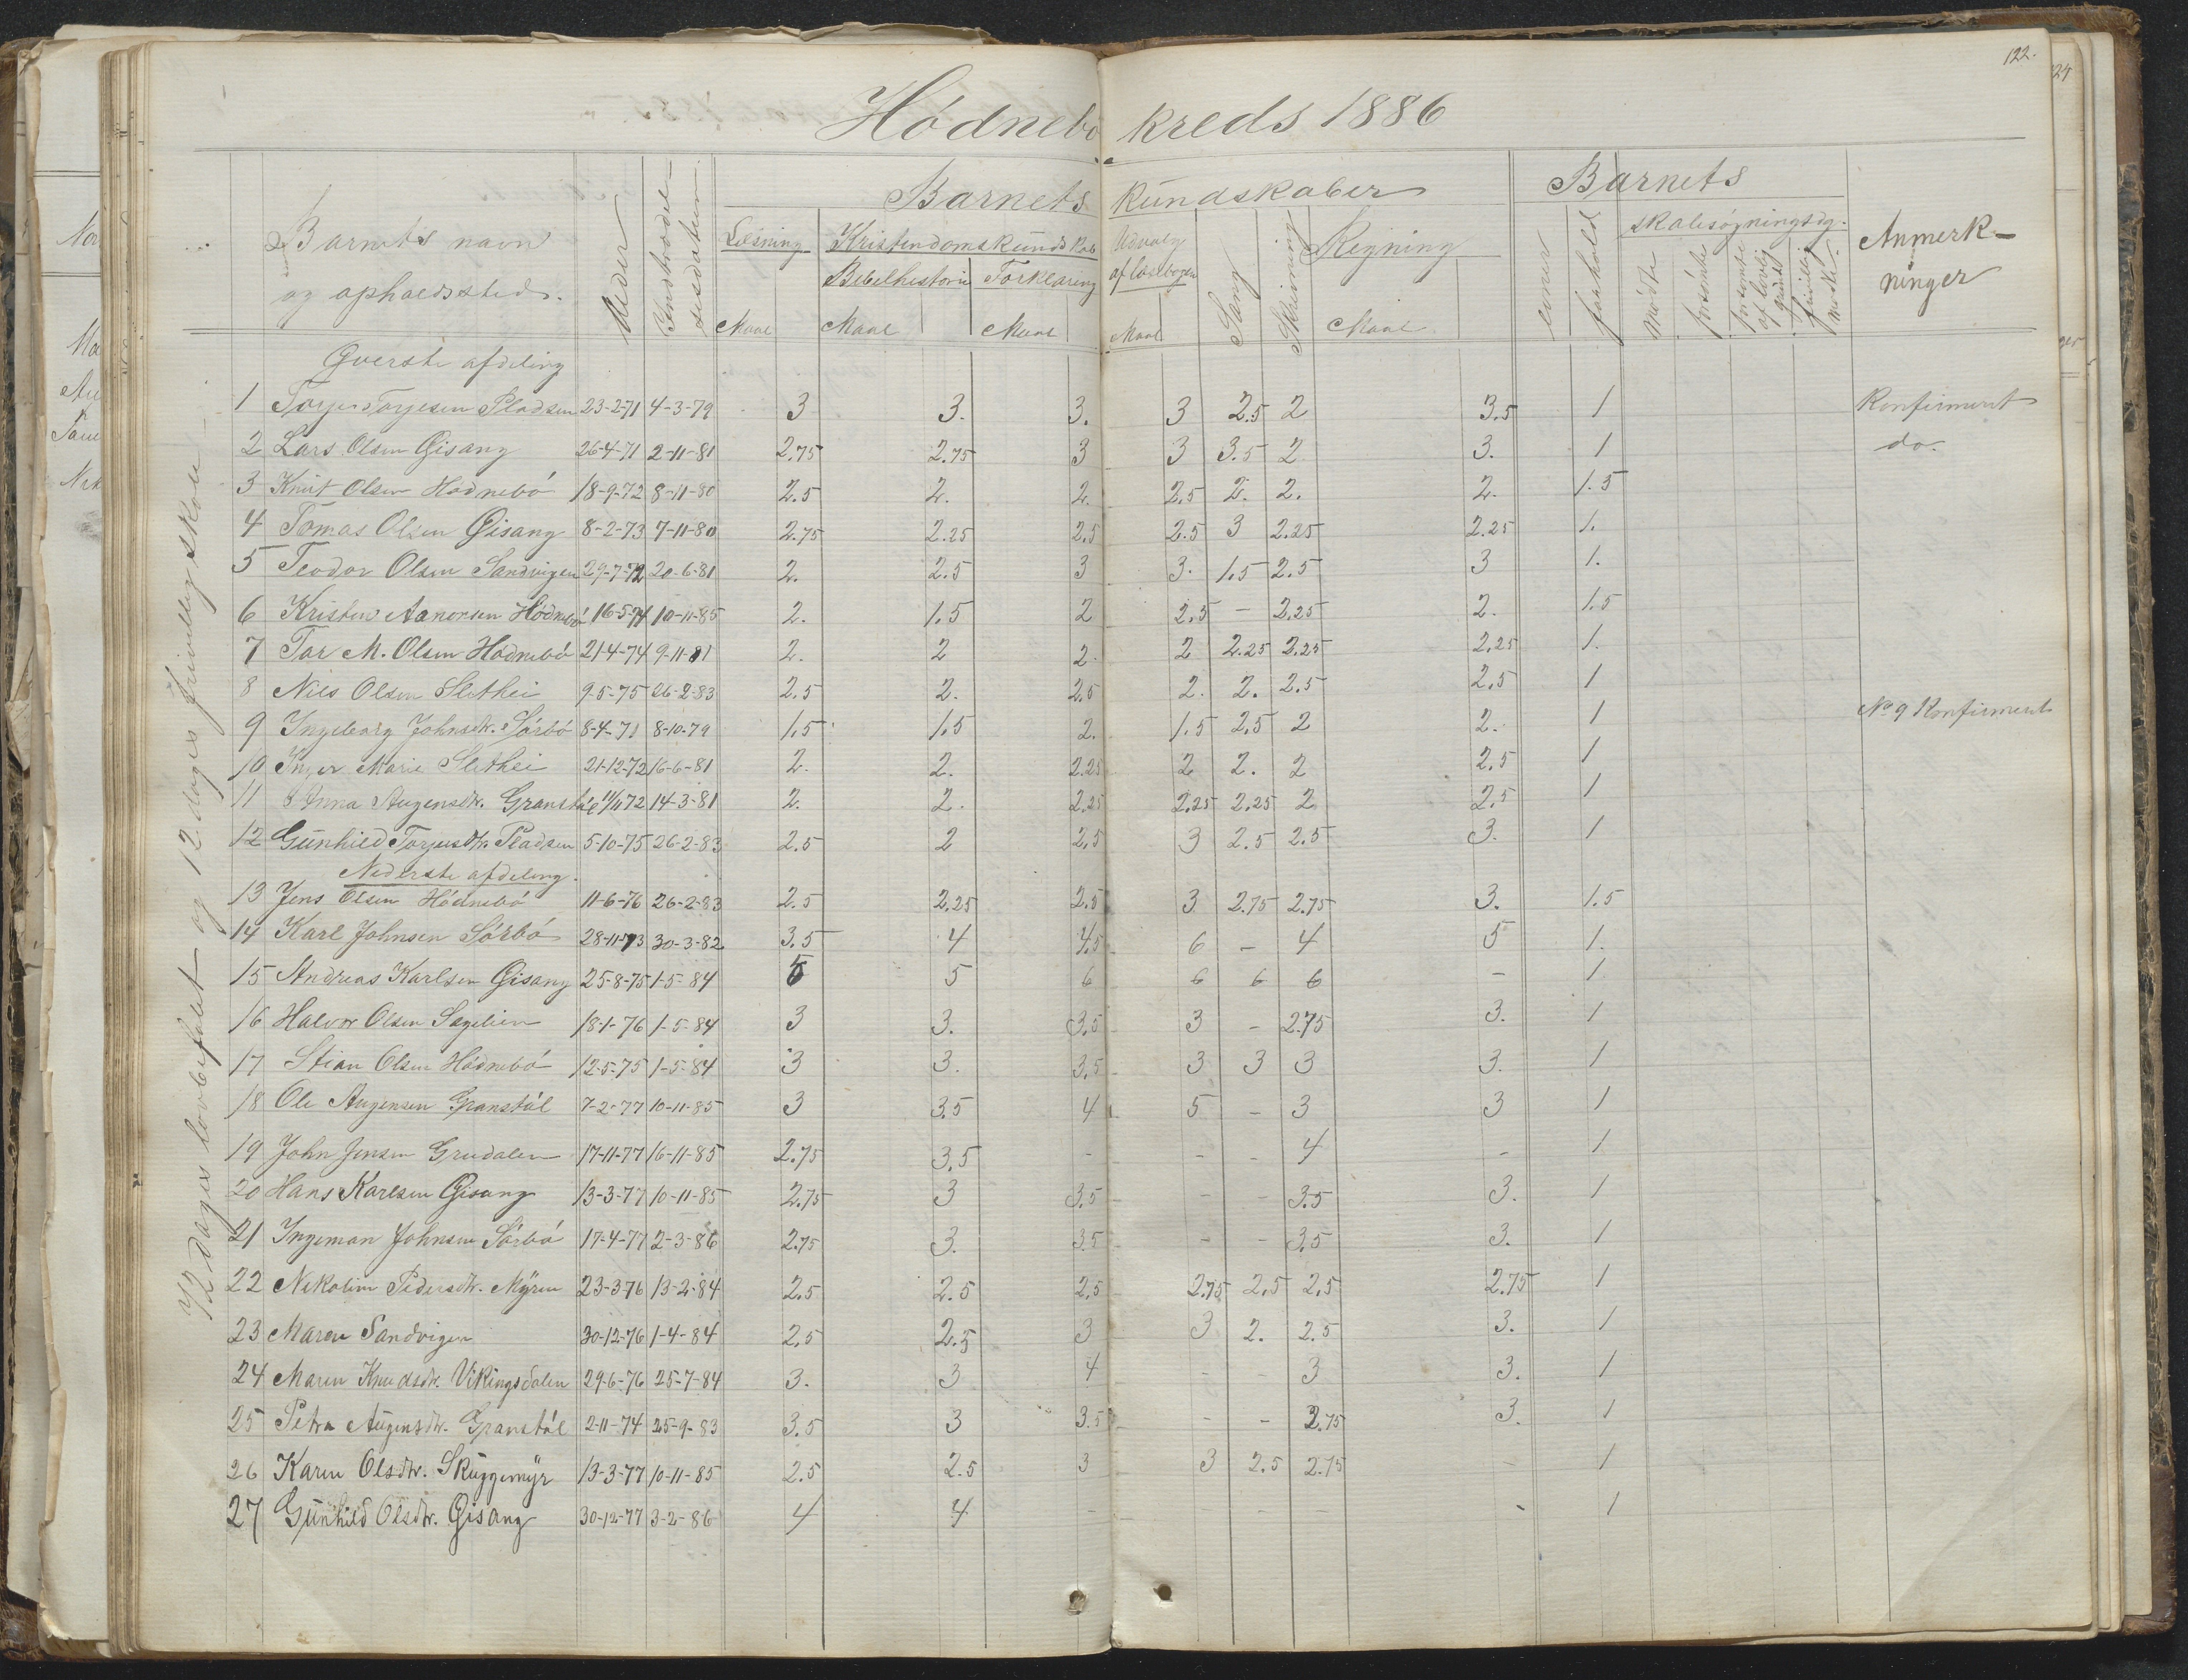 122.
Hódnebó kreds 1886
Barnets kundskaber
Barnets
Barnets navn og opholdssted.
Alder
Indtrædelsesdatum
Læsning
Kristendomskundskab
Bibelhistorie
Forklaring
Udvalg af læsebogen
Sang
Skrivning
Regning
evner
forhold
skolesøgningsdg.
mødte
forsømte
forsømte af lovlig grund
frivillig mødte
Anmerkninger
Maal Maal Maal Maal Maal
72 dages lovbefalet og 12 dages frivillig skole
Øverste afdeling
1 Torjus Torjesen Pladsen 23-2-71 4-3-79 3 3. 3. 3 2.5 2 3.5 1 Konfirmert
2 Lars Olsen Gisang 26-4-71 2-11-81 2.75 2.75 3 3 3.5 2 3. 1 do.
3 Knut Olsen Hódnebó 18-9-72 8-11-80 2.5 2. 2. 2.5 2. 2. 2. 1.5
4 Tomas Olsen Gisang 8-2-73 7-11-80 2.75 2.25 2.5 2.5 3 2.25 2.25 1.
5 Teodor Olsen Sandvigen 29-7-72 20-6-81 2. 2.5 3 3. 1.5 2.5 3 1.
6 Kristen Aanonsen Hódnebó 16-5-74 10-11-85 2. 1.5 2 2.5 - 2.25 2. 1.5
7 Tor M. Olsen Hódnebó 21-4-74 9-11-81 2. 2 2. 2 2.25 2.25 2.25 1.
8 Nils Olsen Slethei 9-5-75 26-2-83 2.5 2. 2.5 2. 2. 2.5 2.5 1
9 Ingeborg Johnsdtr. Sórbó 8-4-71 8-10-79 1.5 1.5 2. 1.5 2.5 2 2. 1 No 9 Konfirmert
10 Inger Marie Slethei 21-12-72 16-6-81 2. 2. 2.25 2 2. 2 2.5 1
11 Anna Augensdtr. Granstól 11/11 72 14-3-81 2. 2. 2.25 2.25 2.25 2 2.5 1
12 Gunhild Torjusdtr. Pladsen 5-10-75 26-2-83 2.5 2 2.5 3 2.5 2.5 3. 1
Nederste afdeling.
13 Jens Olsen Hódnebó 11-6-76 26-2-83 2.5 2.25 2.5 3 2.75 2.75 3. 1.5
14 Karl Johnsen Sórbó 28-11-73 30-3-82 3.5 4 4.5 6 - 4 5 1.
15 Andreas Karlsen Gisang 25-8-75 1-5-84 5 5 6 6 6 6 - 1
16 Halvor Olsen Sagelien 18-1-76 1-5-84 3 3. 3.5 3 - 2.75 3. 1
17 Stian Olsen Hódnebó 12-5-75 1-5-84 3 3. 3.5 3 3 3 3. 1
18 Ole Augensen Granstól 7-2-77 10-11-85 3 3.5 4 5 - 3 3 1
19 John Jensen Grudalen 17-11-77 16-11-85 2.75 3.5 - - - 4 - 1
20 Hans Karlsen Gisang 13-3-77 10-11-85 2.75 3 3.5 - - 3.5 3. 1
21 Ingeman Johnsen Sórbó 17-4-77 2-3-86 2.75 3. 3.5 - - 3.5 3. 1
22 Nikoline Pedersdtr. Myren 23-3-76 13-2-84 2.5 2.5 2.5 2.75 2.5 2.5 2.75 1
23 Maren Sandvigen 30-12-76 1-4-84 2.5 2.5 3 3 2. 2.5 3. 1
24 Maren Knudsdtr. Vikingsdalen 29-6-76 25-7-84 3. 3 4 - - 3 3. 1
25 Petra Augensdtr. Granstól 2-11-74 25-9-83 3.5 3 3.5 - - 2.75 3. 1
26 Karen Olsdtr. Skuggemyr 13-3-77 10-11-85 2.5 2.5 3 3 2.5 2.75 - 1
27 Gunhild Olsdtr. Gisang 30-12-77 3-2-86 4 4 - - - - - 1